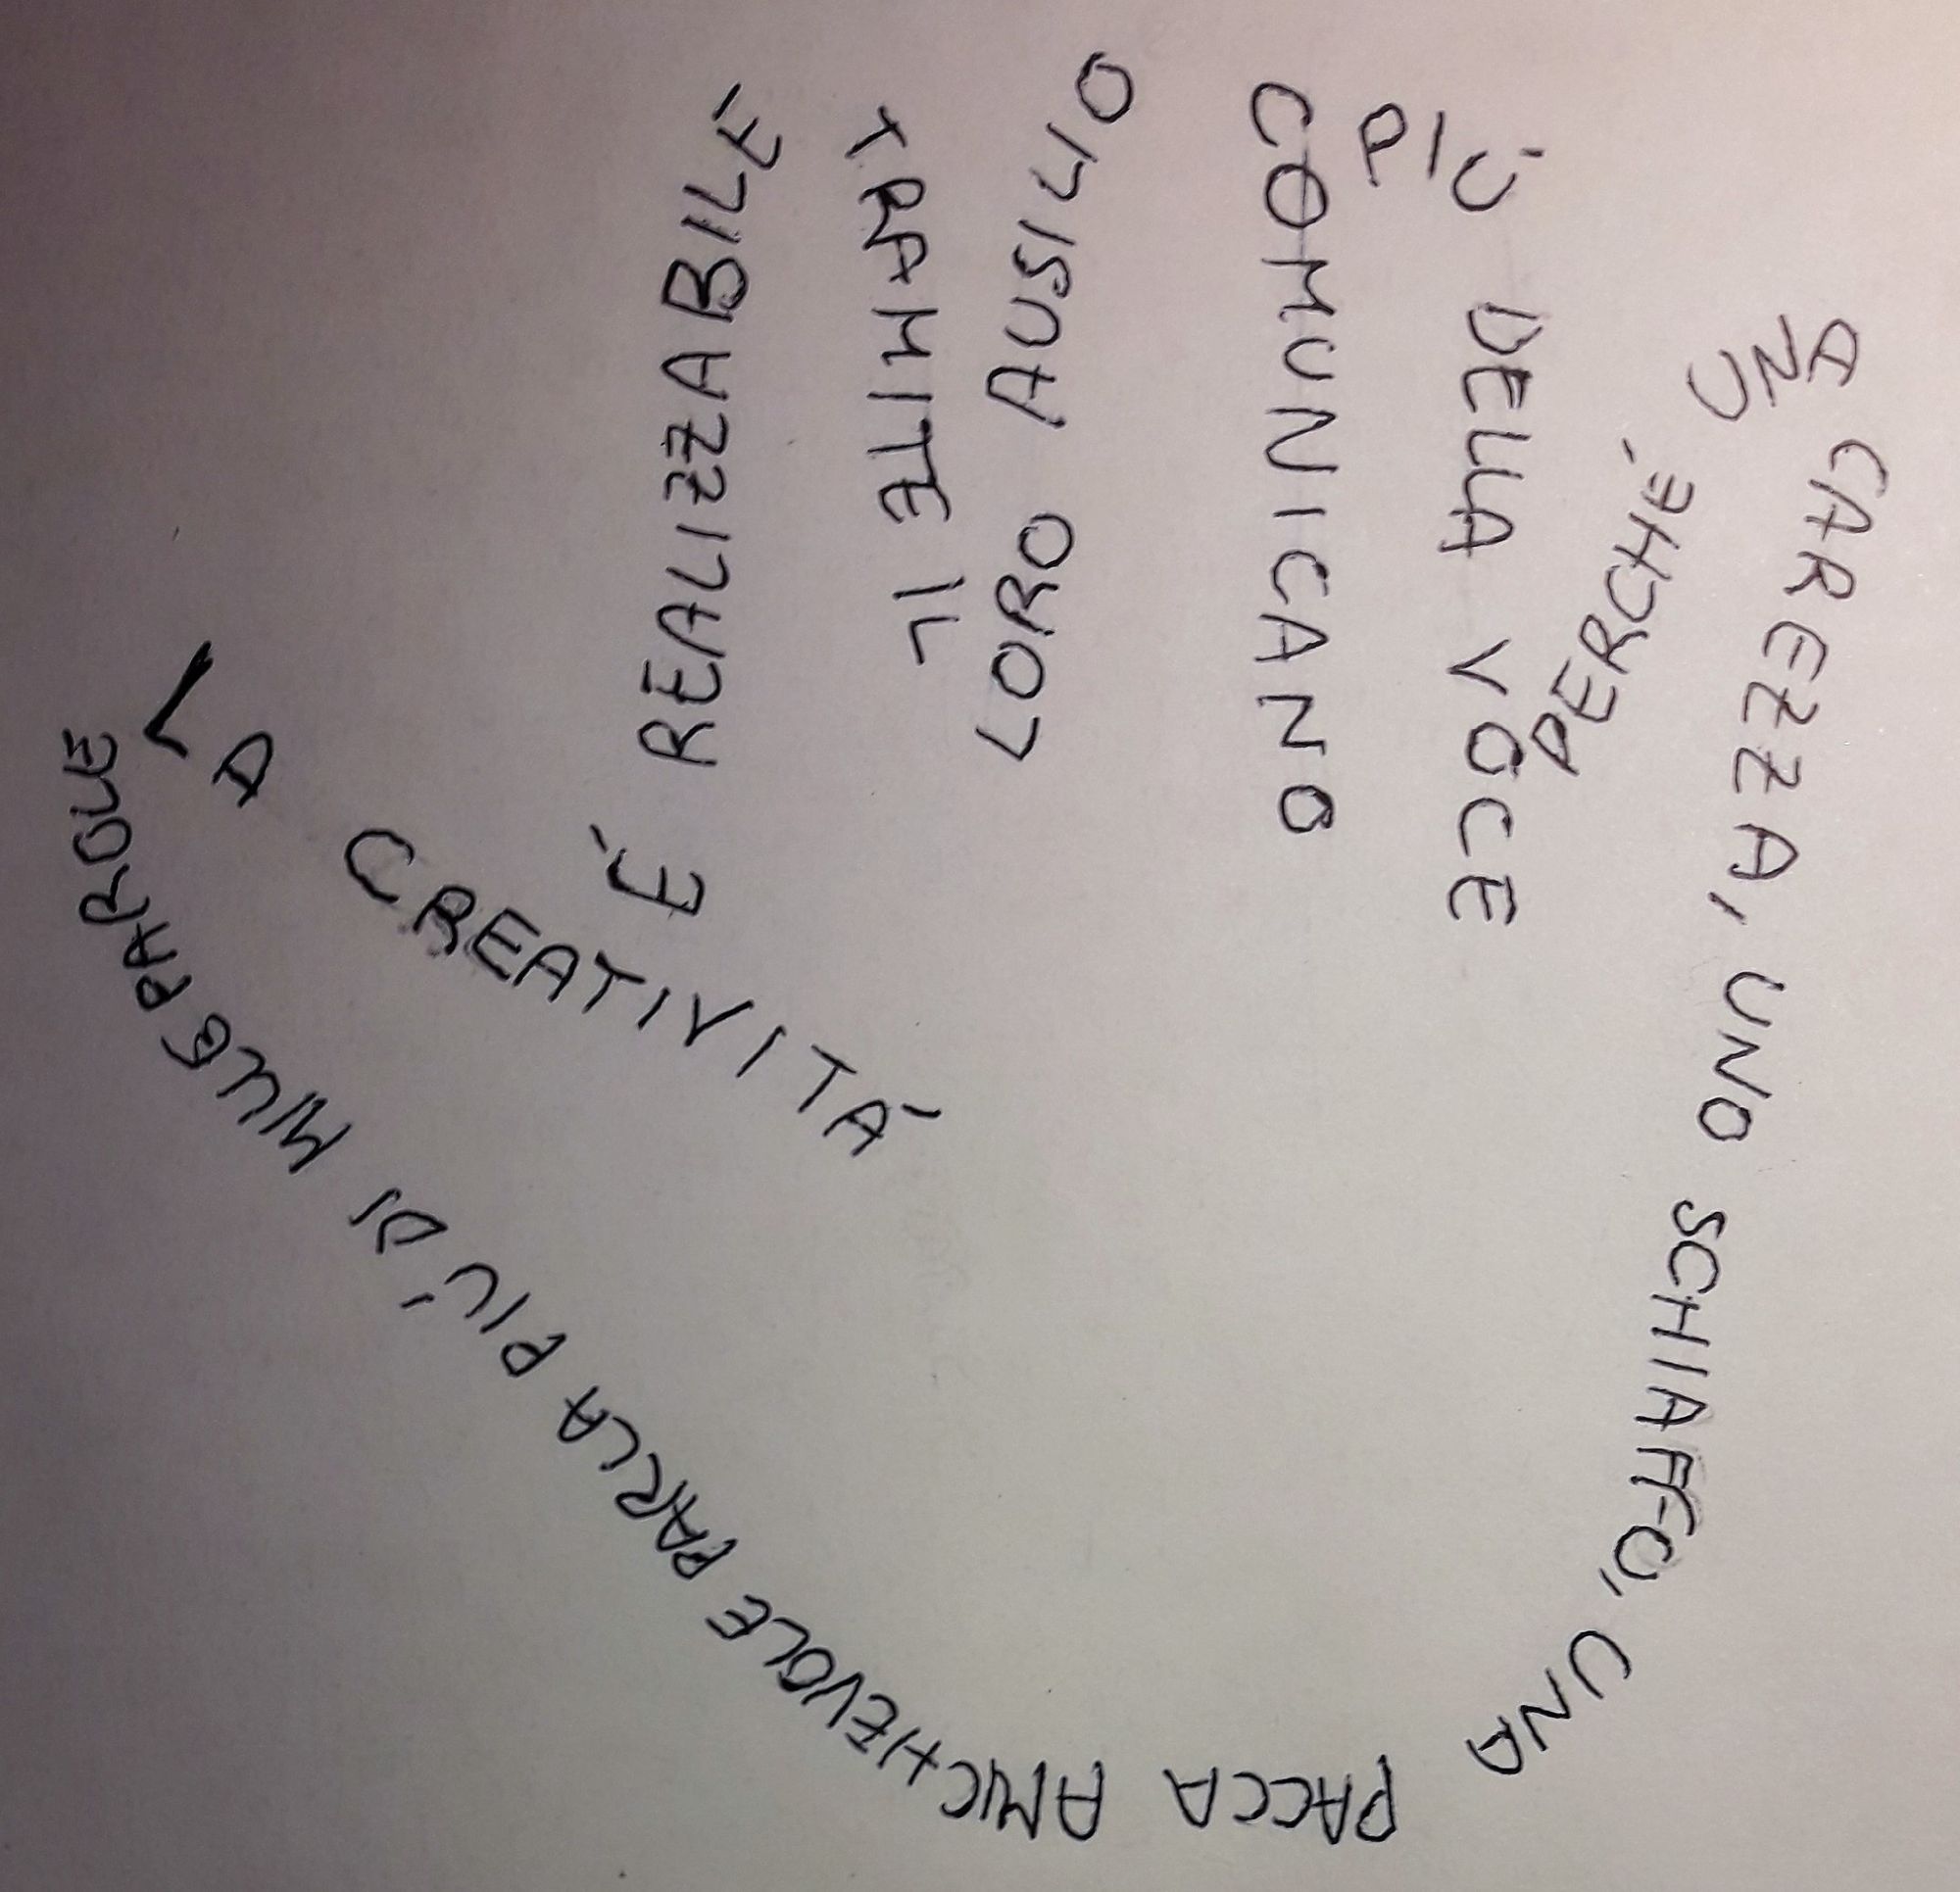 LA CREATIVITÁ
É REALIZZABILE
TRAMITE IL
LORO AUSILIO
COMUNICANO
PIÙ DELLA VOCE
PERCHÉ
UNA CAREZZA, UNO SCHIAFFO, UNA PACCA AMICHEVOLE PARLA PIÚ DI MILLE PAROLE